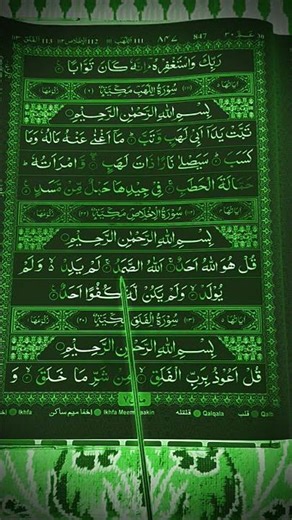 رَبِّكَ وَاسْتَغْفِرْهُ ؔ اِنَّهٗ كَانَ تَوَّابًا
سُوْرَةُ اللَّهَبِ مَكِّيَّةٌ
بِسْمِ اللّٰهِ الرَّحْمٰنِ الرَّحِيْمِ
تَبَّتْ يَدَاۤ اَبِيْ لَهَبٍ وَّتَبَّ مَاۤ اَغْنٰى عَنْهُ مَالُهٗ وَمَا
كَسَبَ سَيَصْلٰى نَارًا ذَاتَ لَهَبٍ وَّامْرَاَتُهٗ
حَمَّالَةَ الْحَطَبِ فِيْ جِيْدِهَا حَبْلٌ مِّنْ مَّسَدٍ
سُوْرَةُ الْاِخْلَاصِ مَكِّيَّةٌ
بِسْمِ اللّٰهِ الرَّحْمٰنِ الرَّحِيْمِ
قُلْ هُوَ اللّٰهُ اَحَدٌ اَللّٰهُ الصَّمَدُ لَمْ يَلِدْ وَلَمْ
يُوْلَدْ وَلَمْ يَكُنْ لَّهٗ كُفُوًا اَحَدٌ
سُوْرَةُ الْفَلَقِ مَكِّيَّةٌ
بِسْمِ اللّٰهِ الرَّحْمٰنِ الرَّحِيْمِ
قُلْ اَعُوْذُ بِرَبِّ الْفَلَقِ مِنْ شَرِّ مَا خَلَقَ وَ
Ikhfa اخفا ميم ساكن Ikhfa Meem Saakin قلقله Qalqala قلب Qalb